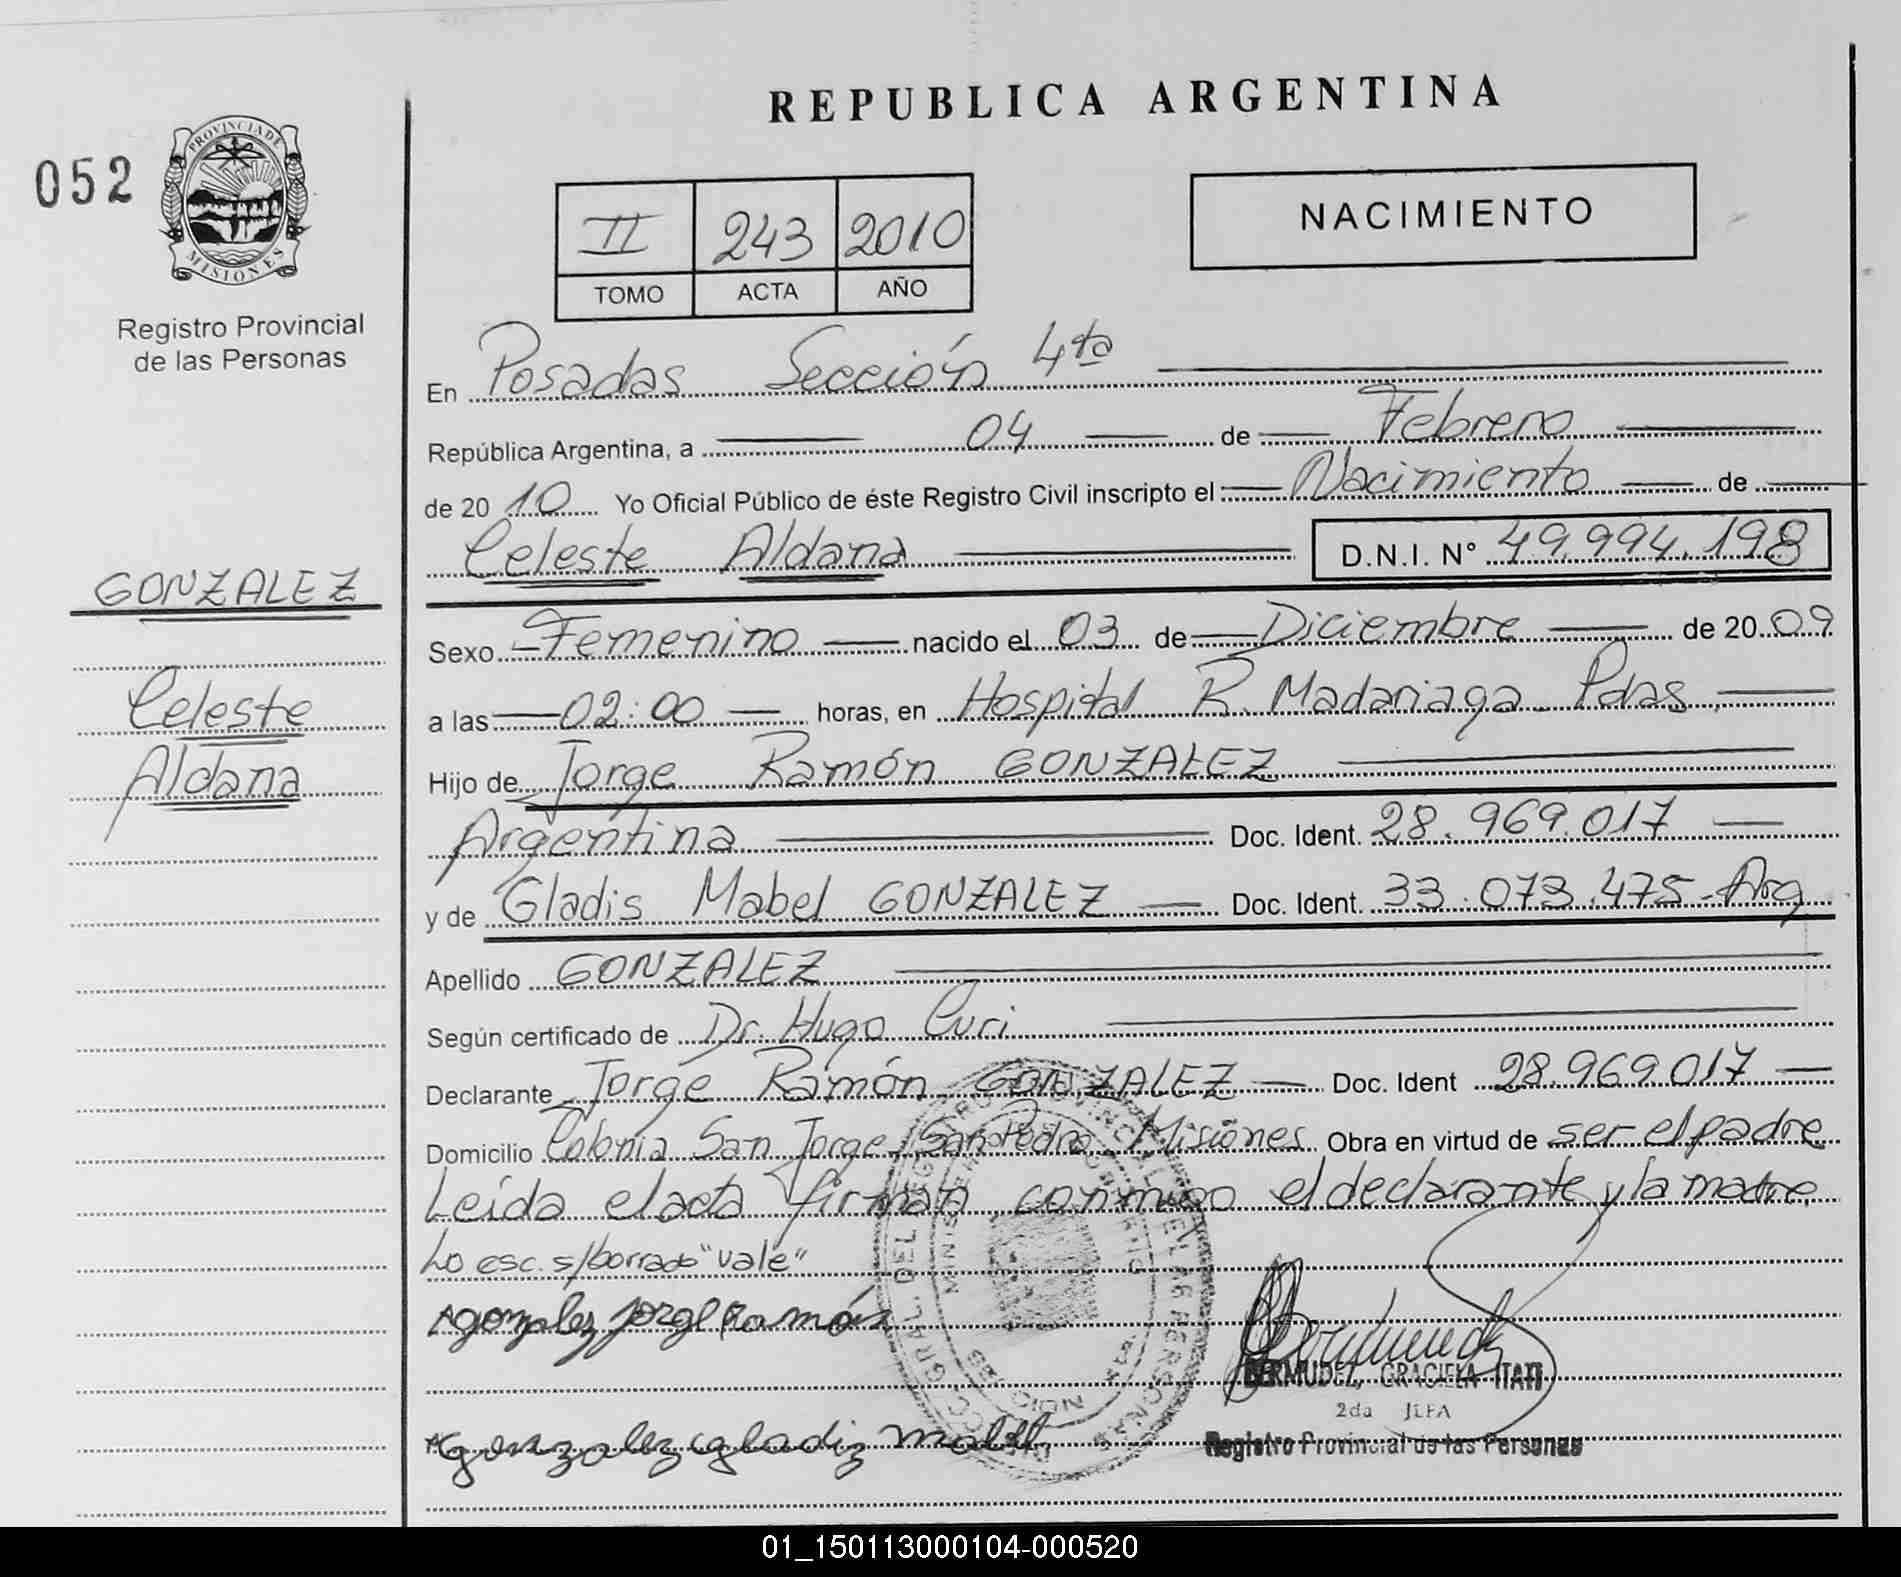 REPUBLICA ARGENTINA
052
PROVINCIA DE
MISIONES
Registro Provincial
de las Personas
II 243 2010
TOMO ACTA AÑO
NACIMIENTO
En Posadas Sección 4ta
República Argentina, a 04 de Febrero
de 2010 Yo Oficial Público de éste Registro Civil inscripto el Nacimiento de
Celeste Aldana D.N.I. N° 49.994.198
GONZALEZ
Celeste
Aldana
Sexo Femenino nacido el 03 de Diciembre de 2009
a las 02:00 horas, en Hospital R. Madariaga. Pdas.
Hijo de Jorge Ramón GONZALEZ
Argentina Doc. Ident. 28.969.017
y de Gladis Mabel GONZALEZ Doc. Ident. 33.073.475 - Arg
Apellido GONZALEZ
Según certificado de Dr. Hugo Curi
Declarante Jorge Ramón GONZALEZ Doc. Ident 28.969.017
Domicilio Colonia San Jorge, San Pedro Misiones Obra en virtud de ser el padre
Leída el acta firman conmigo el declarante y la madre.
Lo esc. s/borrado "vale"
gonzalez jorge Ramón
BERMUDEZ, GRACIELA ITATI
2da JEFA
Registro Provincial de las Personas
gonzalez gladiz mabel
01_150113000104-000520